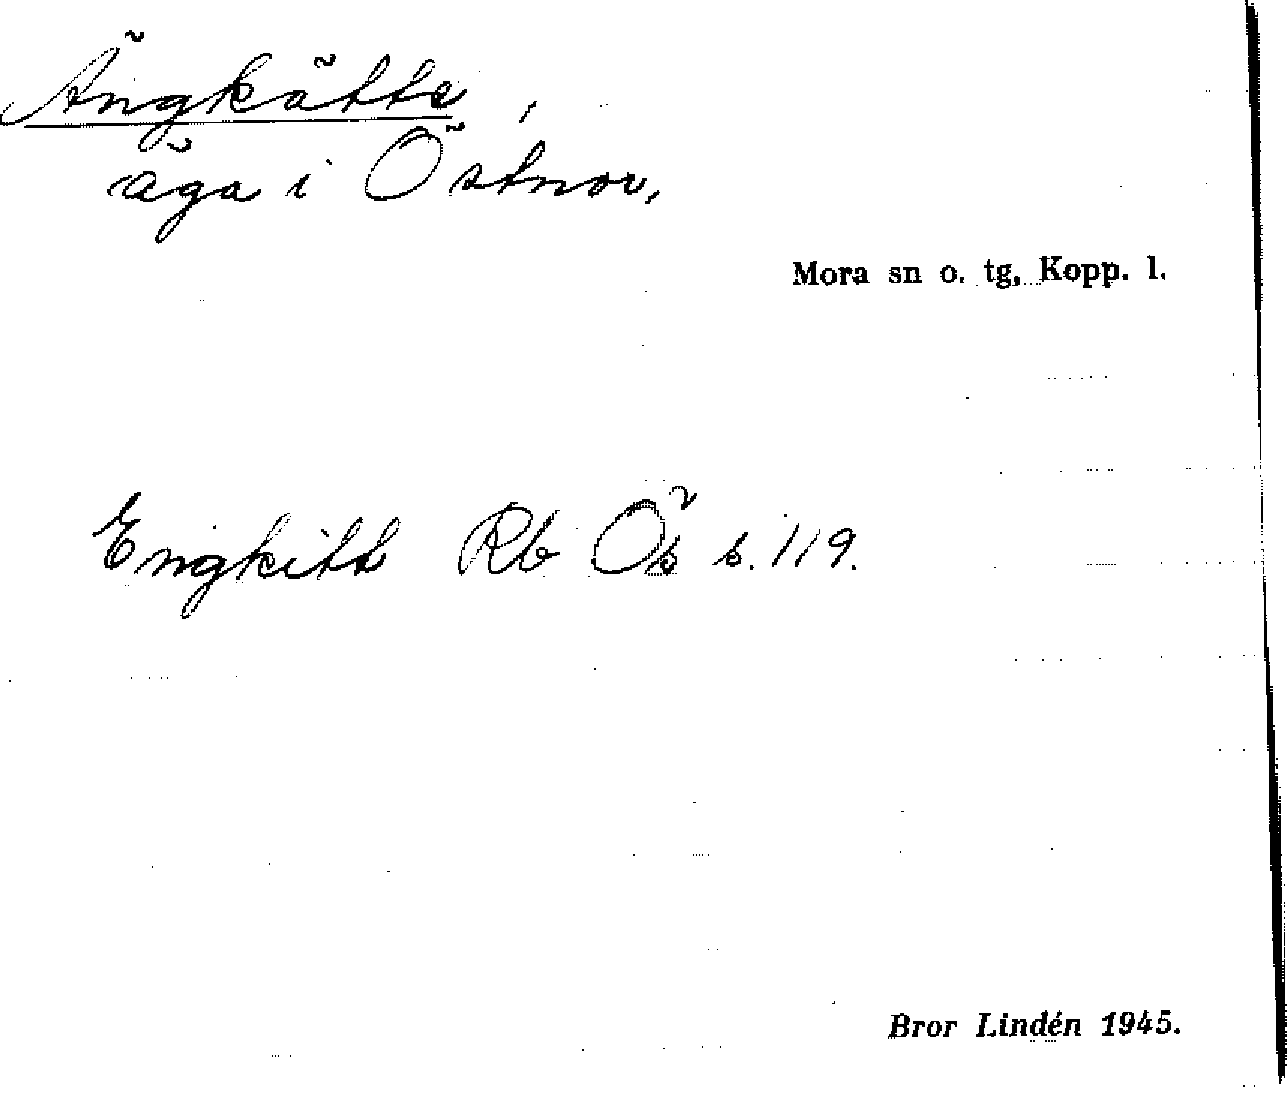 Ängkätte,
äga i Östnor,
Mora sn o. tg, Kopp. l.
Engkitt Rb Ös s. 119.
Bror Lindén 1945.